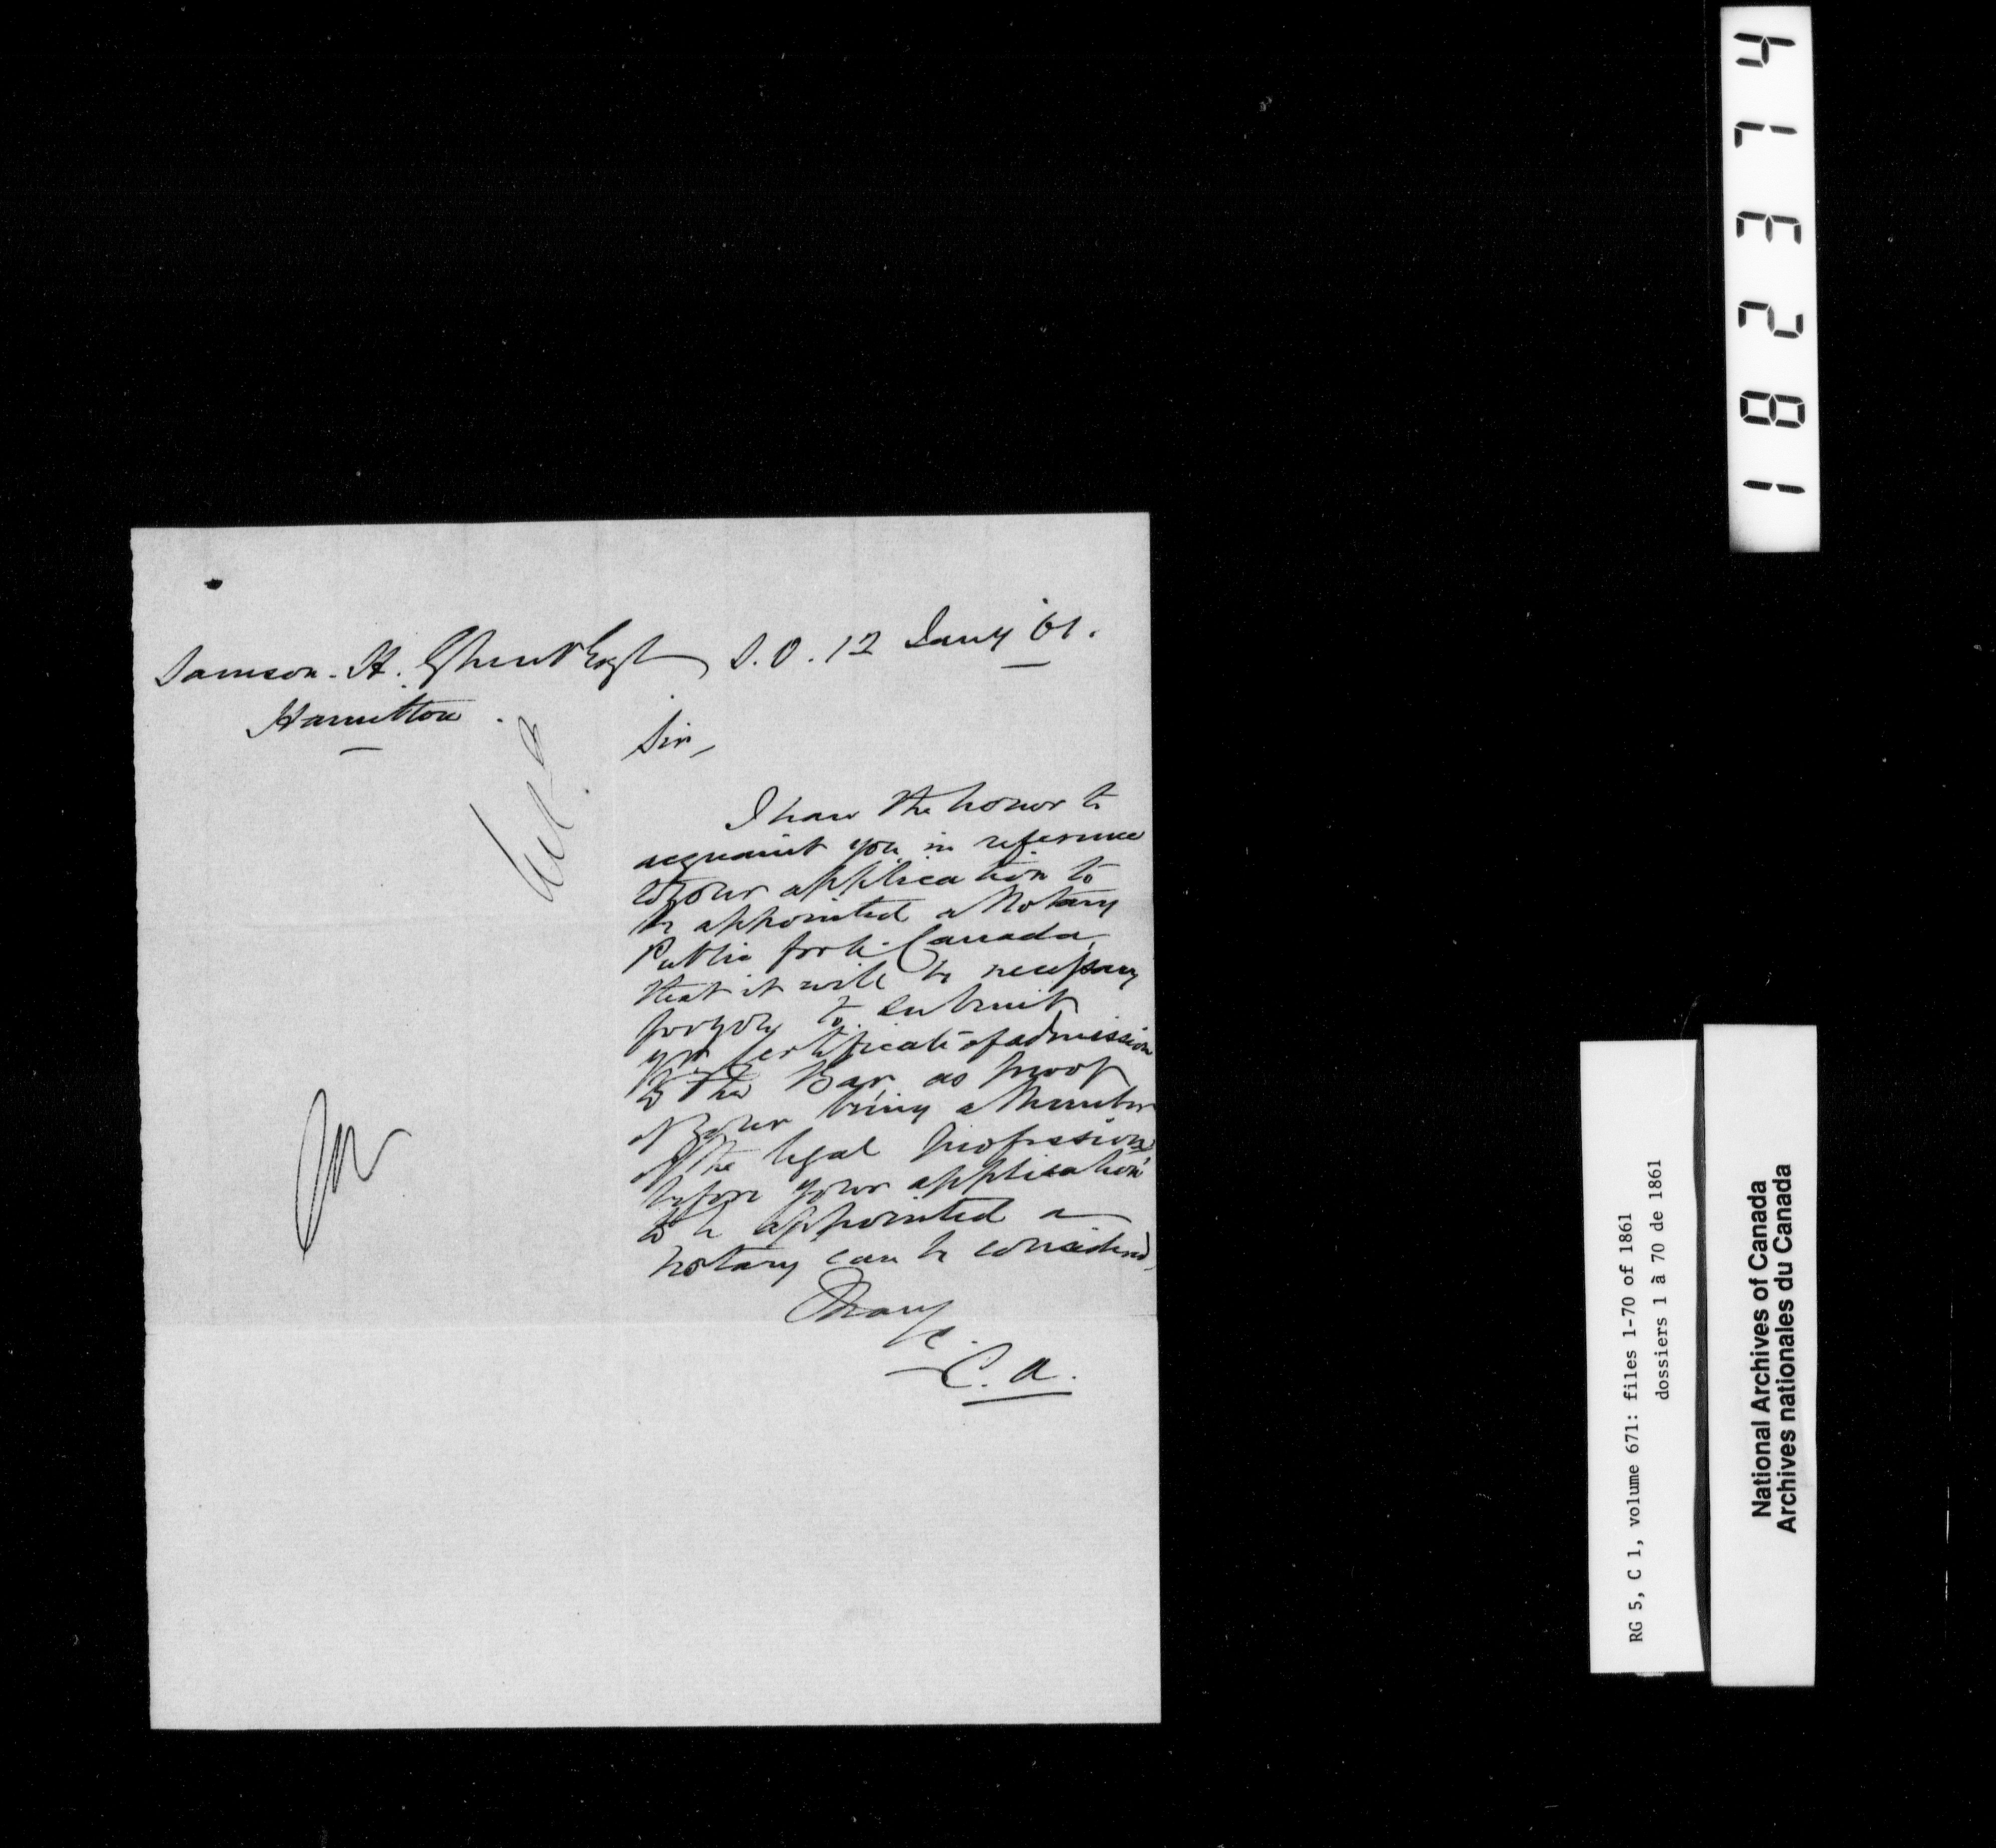 Samson. H. Ghent Esqr S.O. 12 Jany '61.
Hamilton.
Sir,
I have the honor to
acquaint you in reference
to your application to
be appointed a Notary
Public for U. Canada,
that it will be necessary
for you to submit
yr certificate of admission
to the Bar, as proof
of your being a Member
of the legal profession,
before your application
to be appointed a
notary can be considered,
I have
&c.
C. A.
182374
RG 5, C 1, volume 671: files 1-70 of 1861
dossiers 1 à 70 de 1861
National Archives of Canada
Archives nationales du Canada